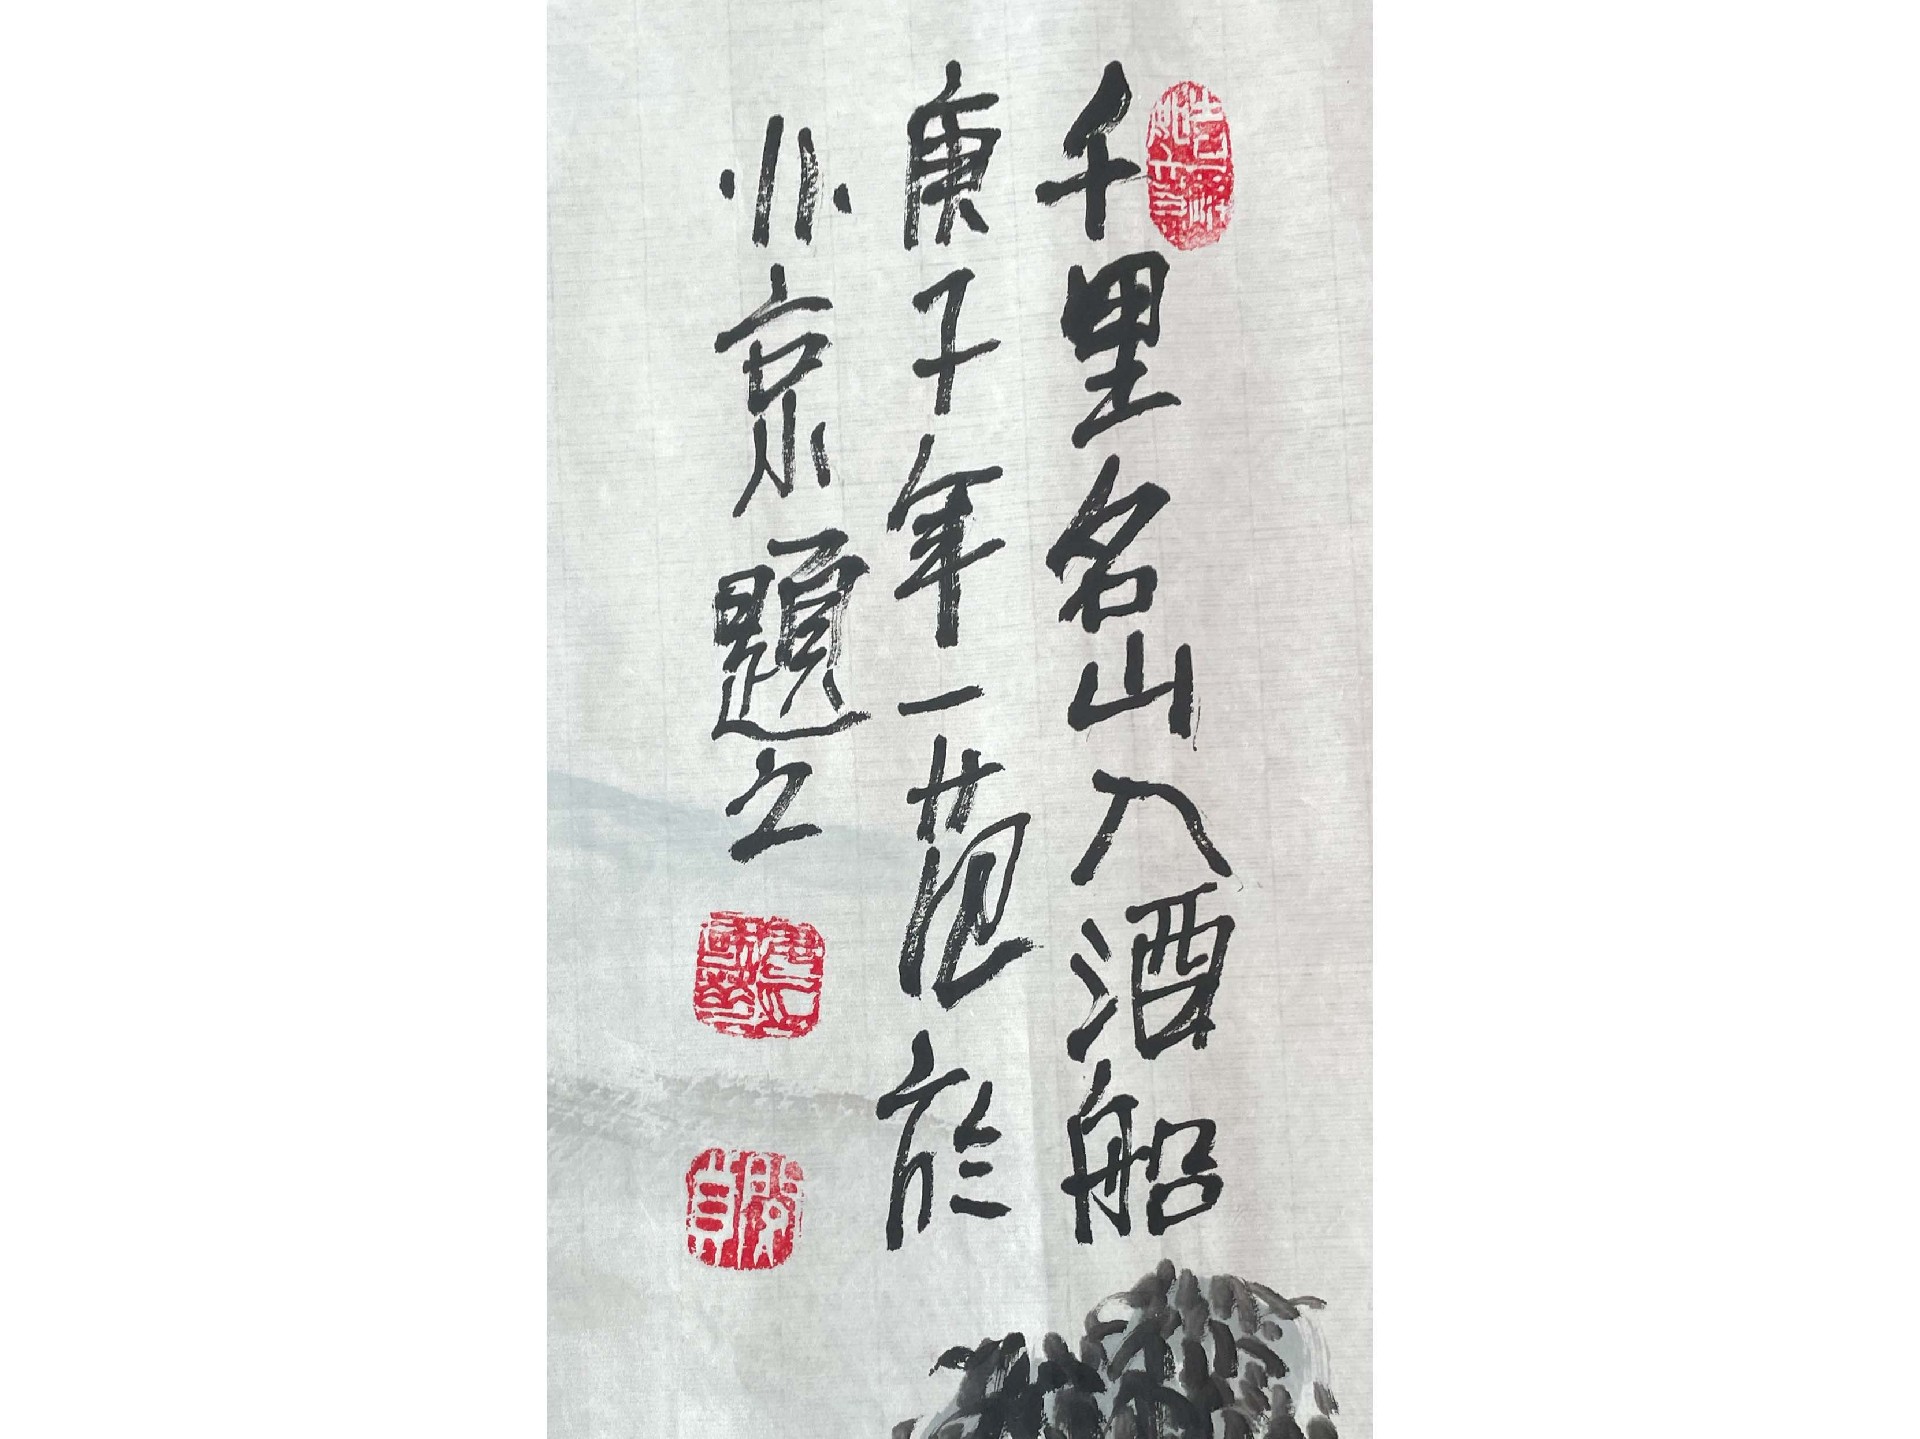 千里名山入酒船
庚子年一范於
北京題之